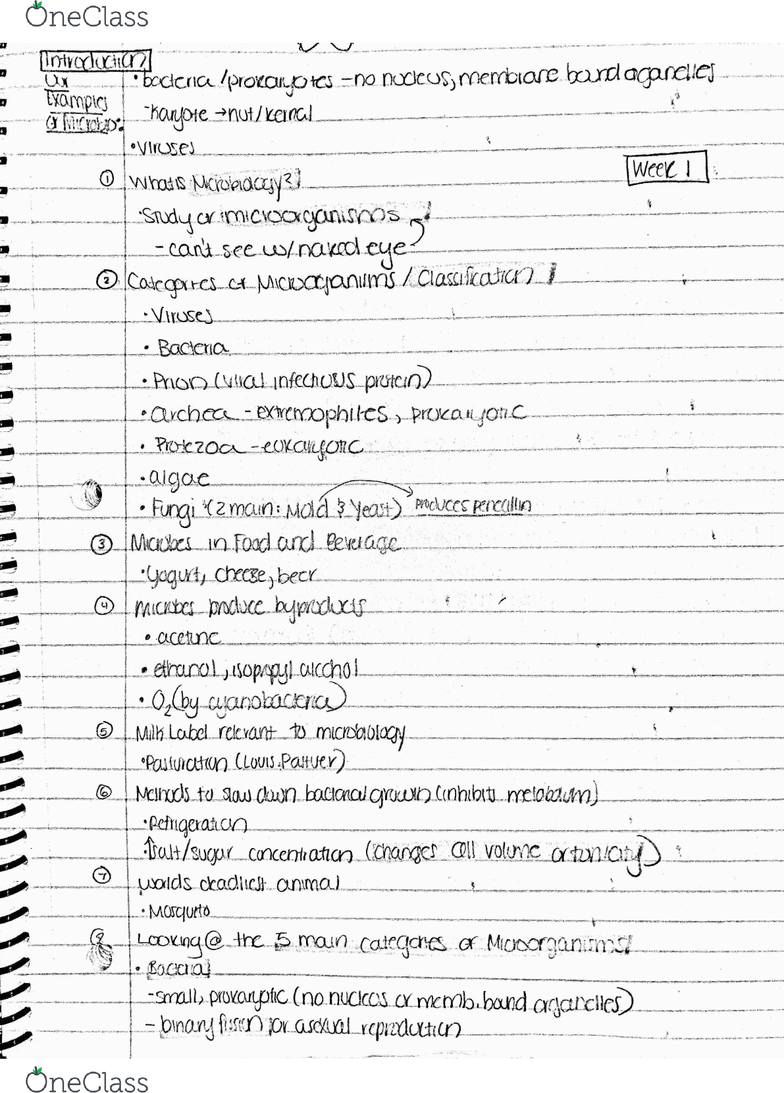 OneClass
Introduction
Ux
Examples
of Microbio.
• bacteria/prokaryotes - no nucleus, membrane bound aganelles
- Karyote → nut/kernal
• Viruses
Week 1
① What is Microbiology?
• Study or microorganisms
- can't see w/ naked eye
② Categories of Microorganisms / Classification
• Viruses
• Bacteria
• Prion (viral infectious protein)
• archea - extremophiles, prokaryotic
• Protozoa - eukaryotic
• algae
• Fungi (2 main: Mold & Yeast) produces penicillin
③ Microbes in Food and Beverage
• Yogurt, cheese, beer
④ Microbes produce byproducts
• acetone
• ethanol, isopropyl alcohol
• O₂ (by cyanobacteria)
⑤ Milk Label relevant to microbiology
• Pasturation (Louis Pastuer)
⑥ Methods to slow down bacterial growth (inhibits metobolism)
• Refrigeration
• ↑ salt/sugar concentration (changes cell volume or tonicity)
⑦ worlds deadliest animal
• Mosquito
⑧ Looking @ the 5 main categories of Microorganisms
• Bacteria
- small, prokaryotic (no nucleos or memb. bound organelles)
- binary fission for asexual reproduction
OneClass